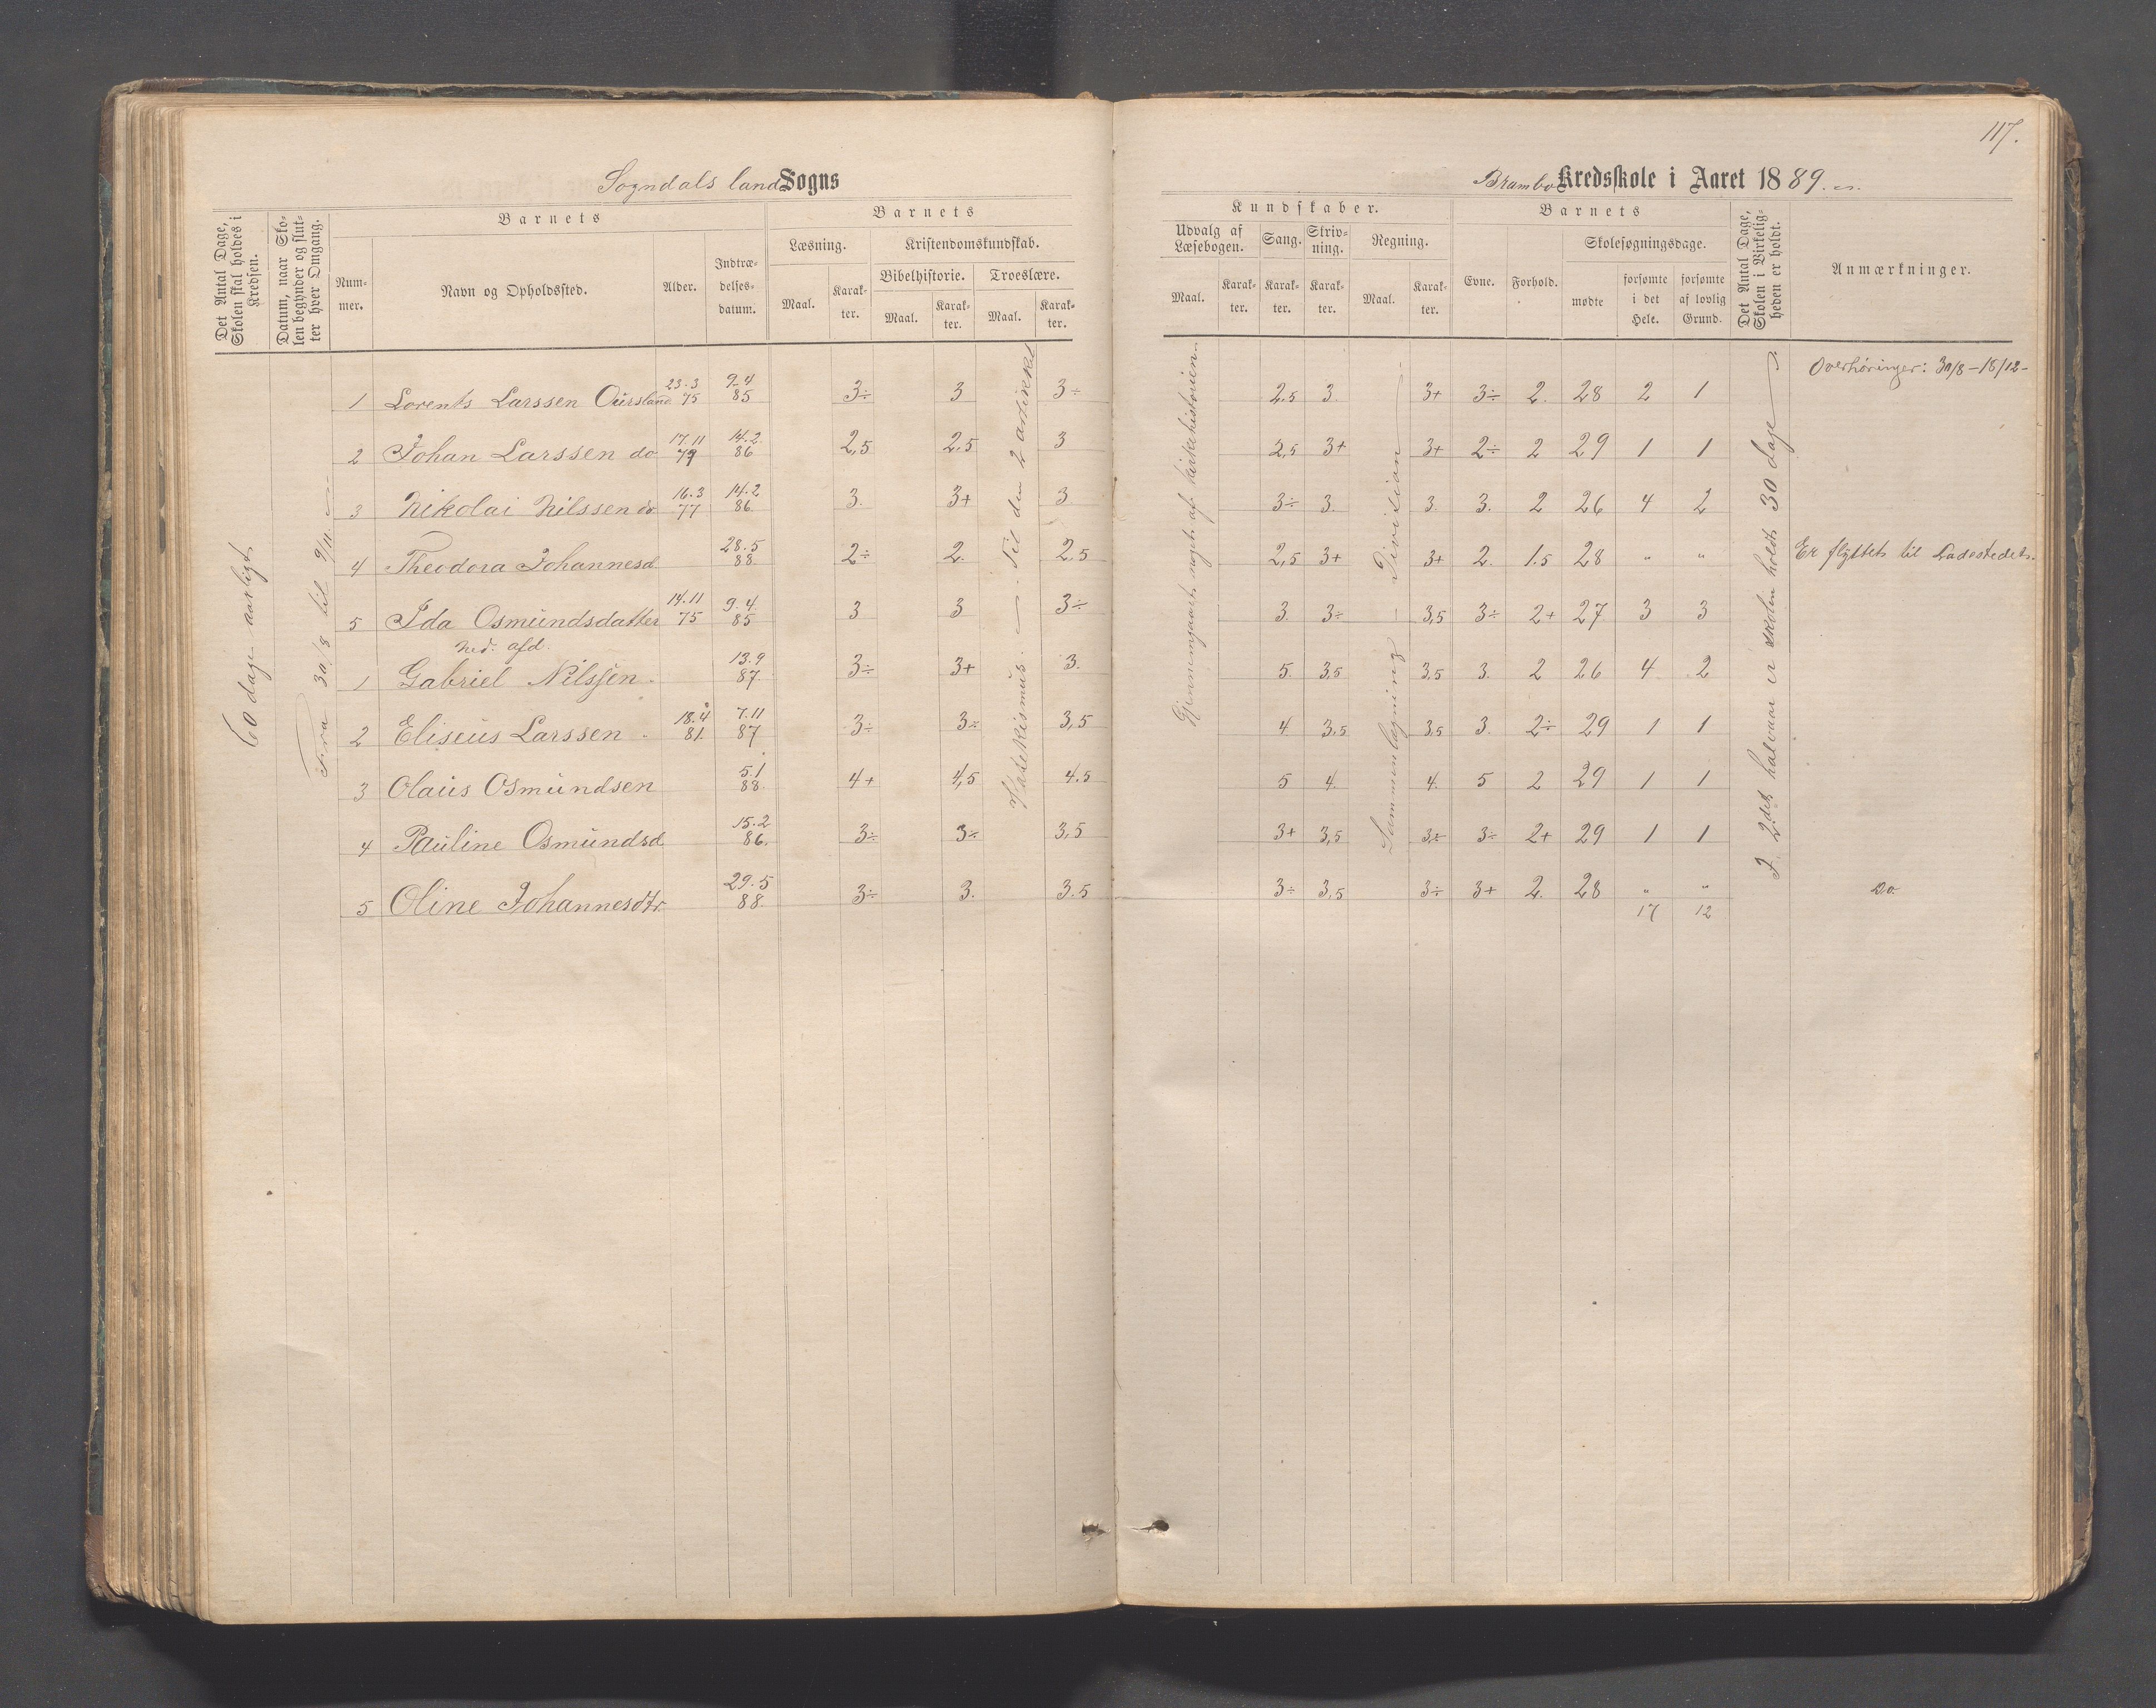 117.
Sogndals land Sogns
Brambo Kredsskole i Aaret 1889.
Det Antal Dage, Skolen skal holdes i Kredsen.
Datum, naar Skolen begynder og slutter hver Omgang.
Barnets
Nummer.
Navn og Opholdssted.
Alder.
Indtrædelsesdatum.
Barnets
Læsning.
Maal.
Karakter.
Kristendomskundskab.
Bibelhistorie.
Maal.
Karakter.
Troeslære.
Maal.
Karakter.
Kundskaber.
Udvalg af Læsebogen.
Maal.
Karakter.
Sang.
Karakter.
Skrivning.
Karakter.
Regning.
Maal.
Karakter.
Barnets
Evne.
Forhold.
Skolesøgningsdage.
mødte
forsømte i det Hele.
forsømte af lovlig Grund.
Det Antal Dage, Skolen i Virkeligheden er holdt.
Anmærkninger.
60 dage aarligt
Fra 30/8 til 9/11
Katekismus. — Til den 2 artikkel
Gjennemgaaet noget af kirkehistorien
Sammenlægning — Division
I 2det halvaar er skolen holdt 30 dage
Overhøringer: 30/8 – 18/12 –
1 Lorents Larssen Oursland 23.3 75 9-4 85 3÷ 3 3÷ 2.5 3. 3+ 3÷ 2. 28 2 1
2 Johan Larssen do 17.11 79 14.2 86 2,5 2.5 3 2,5 3+ 3+ 2÷ 2 29 1 1
3 Nikolai Nilssen do. 16.3 77 14.2 86 3. 3+ 3 3÷ 3. 3. 3. 2 26 4 2
4 Theodora Johannesd 28.5 88 2÷ 2. 2.5 2,5 3+ 3+ 2. 1.5 28 " " Er flyttet til Ladestedet.
5 Ida Osmundsdatter 14.11 75 9.4. 85 3 3 3÷ 3. 3÷ 3,5 3÷ 2+ 27 3 3
Ned. afd.
1 Gabriel Nilssen. 13.9 87. 3÷ 3+ 3. 5. 3,5 3,5 3. 2 26 4 2
2 Eliseus Larssen. 18.4 81. 7.11 87 3÷ 3÷ 3,5 4 3,5 3,5 3. 2÷ 29 1 1
3 Olaus Osmundsen 5.1 88. 4+ 4,5 4.5 5 4. 4. 5 2 29 1 1
4 Pauline Osmundsd 15.2 86. 3÷ 3÷ 3,5 3+ 3,5 3÷ 3÷ 2+ 29 1 1
5 Oline Johannesdtr. 29.5 88. 3÷ 3. 3.5 3÷ 3,5 3÷ 3+ 2. 28 " " Do
17 12